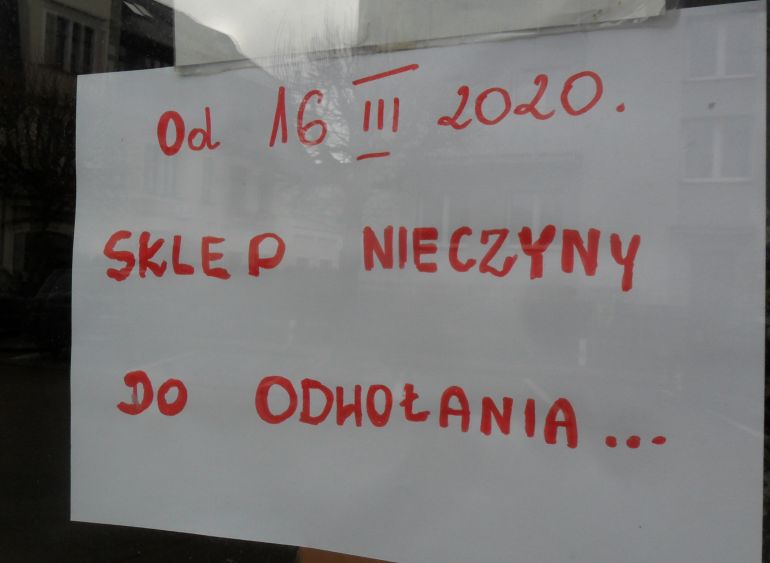 Od 16 III 2020.
SKLEP NIECZYNY
DO ODWOŁANIA...